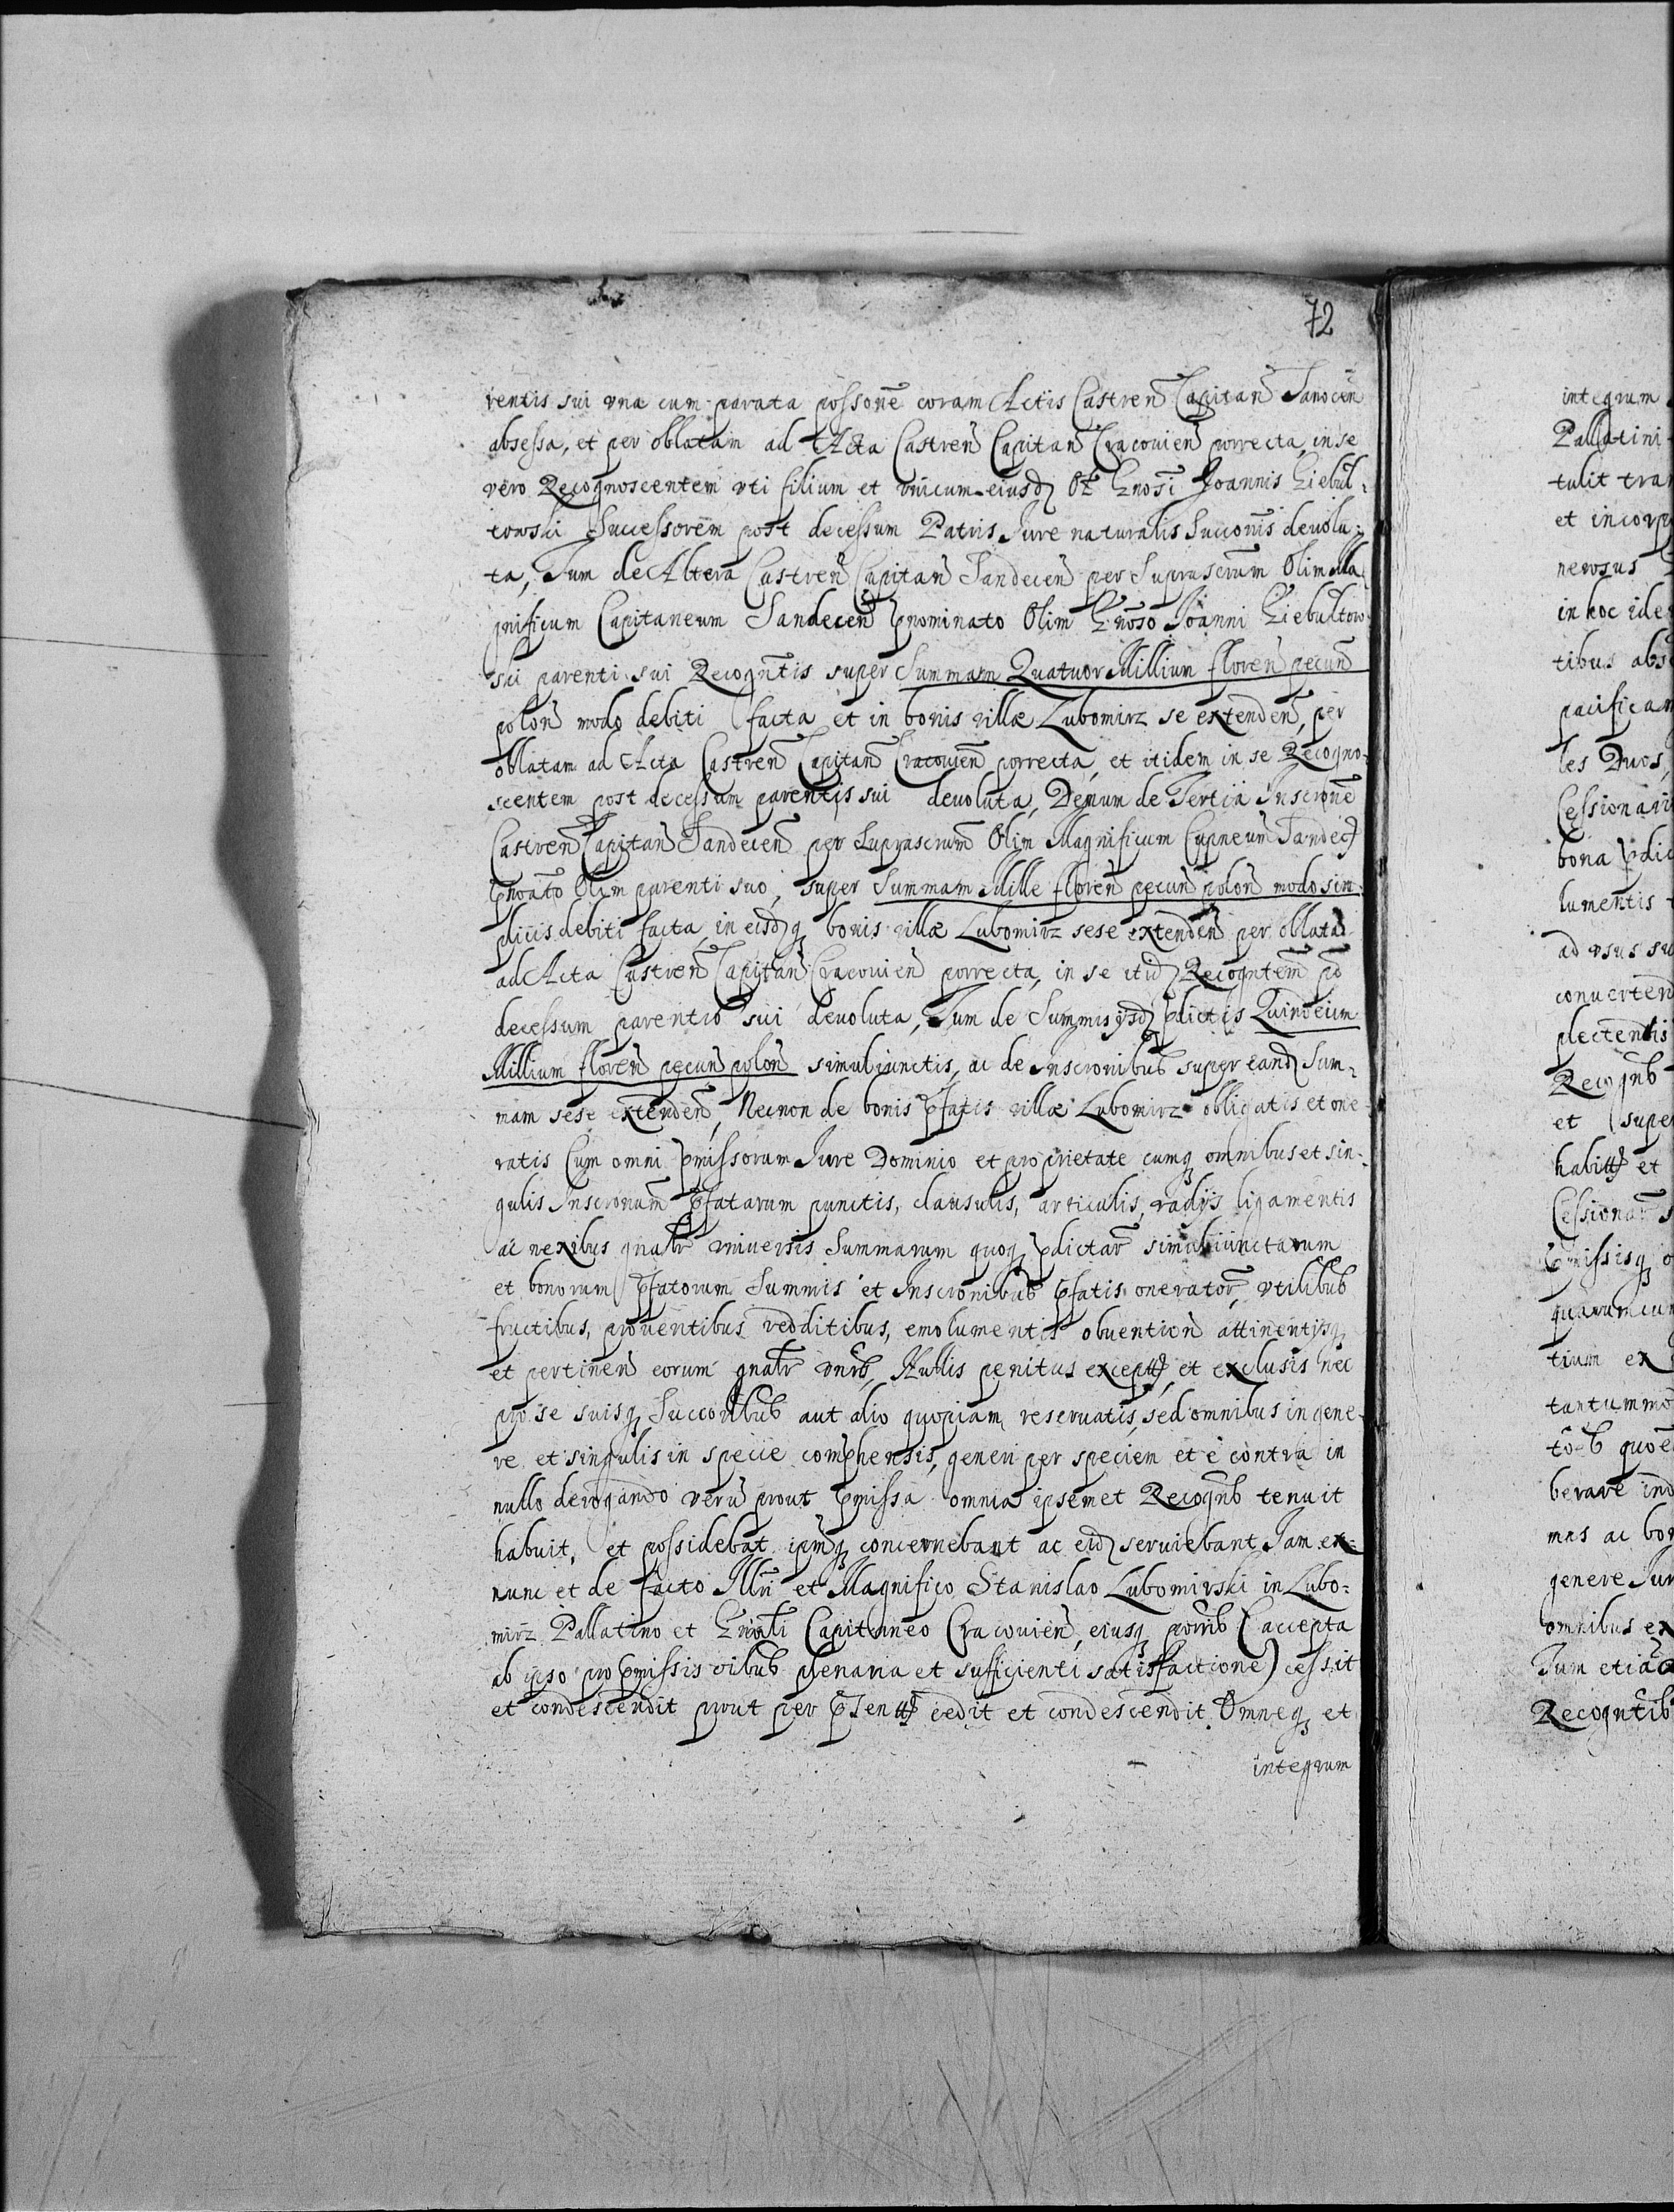 72
rentis sui vna cum parata possonē coram Actis Castreñ Capitañ Sanocēn
absessa, et per oblatam ad Acta Castreñ Capitañ Cracouieñ porrecta, in se
vero Recognoscentem vti filium et vnicum eiusdȝ Ol Gnosi Joannis Giebul-
towski Successorem post decessum Patris Jure naturalis Succonis deuolu-
ta, Tum de Altera Castreñ Capitañ Sandeceñ per Suprascrum Olim Ma
gnificum Capitaneum Sandeceñ pnominato Olim Gnoso Joanni Giebultow
ski parenti sui Recogntis super Summam Quatuor Millium floreñ pecuñ
poloñ modo debiti facta et in bonis villæ Lubomirz se extendeñ, per
oblatam ad Acta Castreñ Capitañ Cracouieñ porrecta, et itidem in se Recogno-
scentem post decessum parentis sui deuoluta, Demum de Tertia Inscronē
Castreñ Capitañ Sandeceñ per Suprascrum Olim Magnificum Cupneum Sandec
pnoato Olim parenti suo, super Summam Mille floreñ pecuñ poloñ modo sim
plicis debiti facta, in eisdȝ q bonis villæ Lubomirz sese extendeñ per oblatā
ad Acta Castreñ Capitañ Cracouieñ porrecta, in se itidȝ Recogntem pō
decessum parentis sui deuoluta, Tum de Summis ysdȝ pdictis Quindecim
Millium floreñ pecuñ poloñ simul iunctis, ac de Inscronibus super eandȝ Sum-
mam sese extendeñ, Necnon de bonis pfatis villæ Lubomirz obligatis et one-
ratis Cum omni pmissorum Jure Dominio et proprietate cumq omnibus et sin-
gulis Inscronum pfatarum punctis, clausulis, articulis, vadijs ligamentis
ac nexibus gnalr vniuersis Summarum quoq pdictar simul iunctarum
et bonorum pfatorum Summis et Inscronibus pfatis onerator, vtilibus
fructibus, prouentibus redditibus, emolumentis obuention attinentysq
et pertineñ eorum gnalr vnīs, Nullis penitus except, et exclusis nec
pro se suisq Succoribus aut alio quopiam reseruatis, sed omnibus in gene-
re et singulis in specie comphensis, generi per speciem et è contra in
nullo derogando verū prout pmissa omnia ipsemet Recogns tenuit
habuit, et possidebat ipmq concernebant ac eidȝ seruiebant Jam ex-
nunc et de facto Illri et Magnifico Stanislao Lubomirski in Lubo-
mirz Pallatino et Gnali Capitaneo Cracouieñ, eiusq porib (accepta
ab ipso pro pmissis oibus plenaria et sufficienti satisfactione) cessit
et condescendit prout per psent cedit et condescendit. Omneq et
integrum
integrum
Pallatini
tulit tran
et incorp
nerosus
in hoc ide
tibus abs
pacifican
les Duos,
Cessionari
bona pdic
lumentis
ad vsus su
conuerten
plectentis
Recogns
et super
habit et
Cessionar
pmissisq
quarumcun
tium ex
tantummo
berare ind
mns ac bon
genere Jur
omnibus ex
Tum etiā
Recogntib